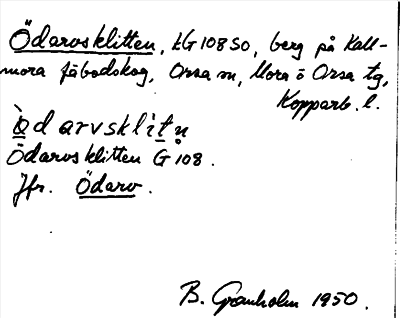 Ödarvsklitten, kG 108 SO, berg på Kall-
mora fäbodskog, Orsa sn, Mora o Orsa tg,
Kopparb. l.
Òdarvsklitn
Ödarvsklitten G 108.
Jfr. Ödarv.
B. Granholm 1950.